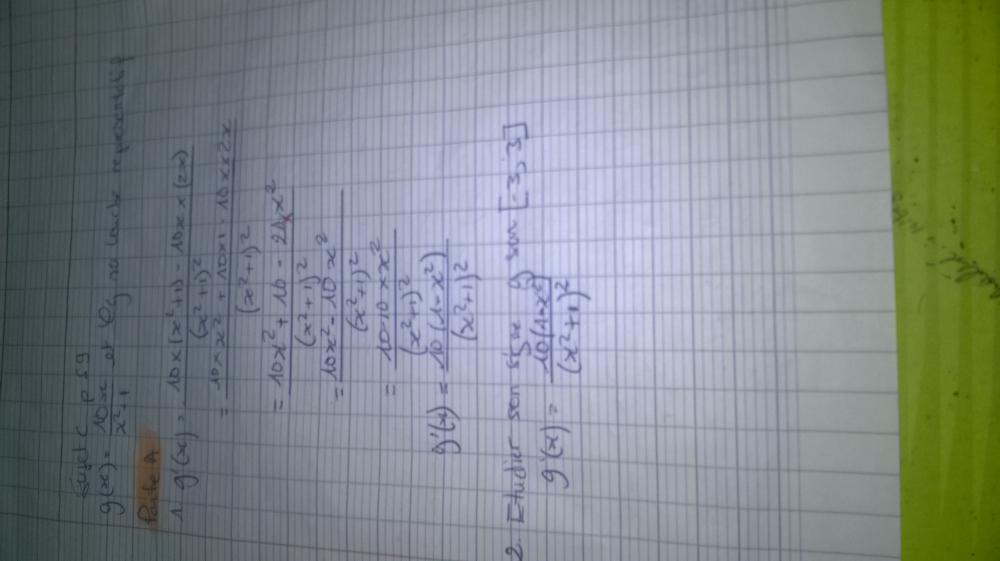 Sujet C p 59
g(x) = 10x / x²+1 et Cg sa courbe représentatif
Partie A
1. g'(x) = 10x(x²+1) - 10x × (2x) / (x²+1)²
= 10 × x² + 10×1 - 10x × 2x / (x²+1)²
= 10x² + 10 - 20x² / (x²+1)²
= 10x² - 10x² / (x²+1)²
= 10-10 × x² / (x²+1)²
g'(x) = 10(1-x²) / (x²+1)²
2. Etudier son signe g sur [-3; 3]
g'(x) = 10(1-x²) / (x²+1)²